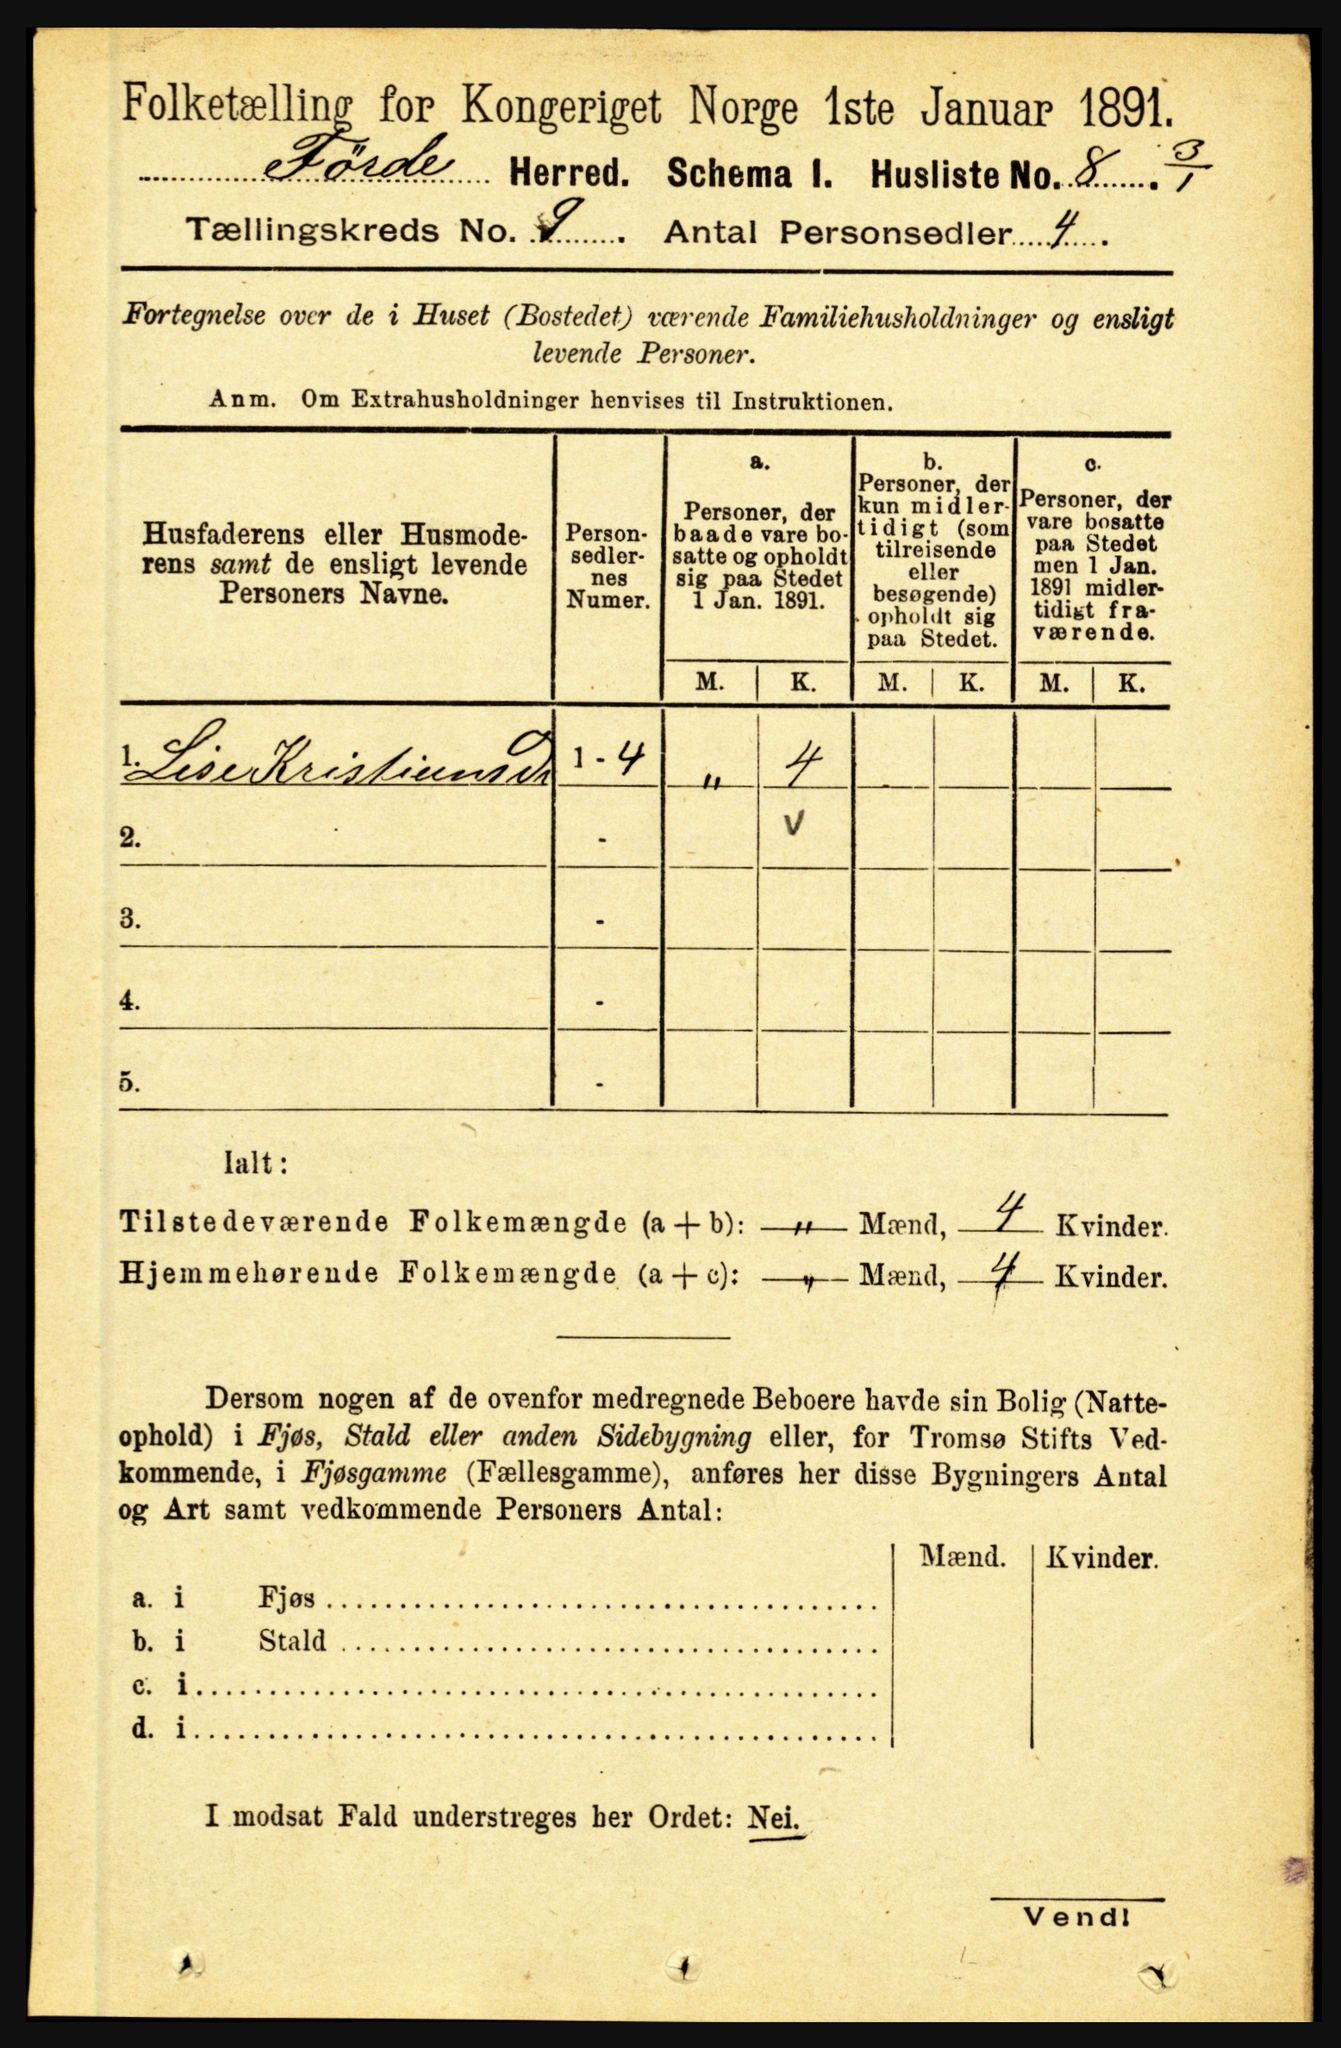 Folketælling for Kongeriget Norge 1ste Januar 1891.
Førde Herred. Schema I. Husliste No. 8. 3/1
Tællingskreds No. 9. Antal Personsedler 4.
Fortegnelse over de i Huset (Bostedet) værende Familiehusholdninger og ensligt
levende Personer.
Anm. Om Extrahusholdninger henvises til Instruktionen.
Husfaderens eller Husmode-
rens samt de ensligt levende
Personers Navne.
Person-
sedler-
nes
Numer.
a.
Personer, der
baade vare bo-
satte og opholdt
sig paa Stedet
1 Jan. 1891.
b.
Personer, der
kun midler-
tidigt (som
tilreisende
eller
besøgende)
opholdt sig
paa Stedet.
c.
Personer, der
vare bosatte
paa Stedet
men 1 Jan.
1891 midler-
tidigt fra-
værende.
M. K. M. K. M. K.
1. Lise Kristiansd. 1 - 4 " 4
2. - v
3. -
4. -
5. -
Ialt:
Tilstedeværende Folkemængde (a + b): " Mænd, 4 Kvinder.
Hjemmehørende Folkemængde (a + c): " Mænd, 4 Kvinder.
Dersom nogen af de ovenfor medregnede Beboere havde sin Bolig (Natte-
ophold) i Fjøs, Stald eller anden Sidebygning eller, for Tromsø Stifts Ved-
kommende, i Fjøsgamme (Fællesgamme), anføres her disse Bygningers Antal
og Art samt vedkommende Personers Antal:
Mænd. Kvinder.
a. i Fjøs
b. i Stald
c. i
d. i
I modsat Fald understreges her Ordet: Nei.
Vend!